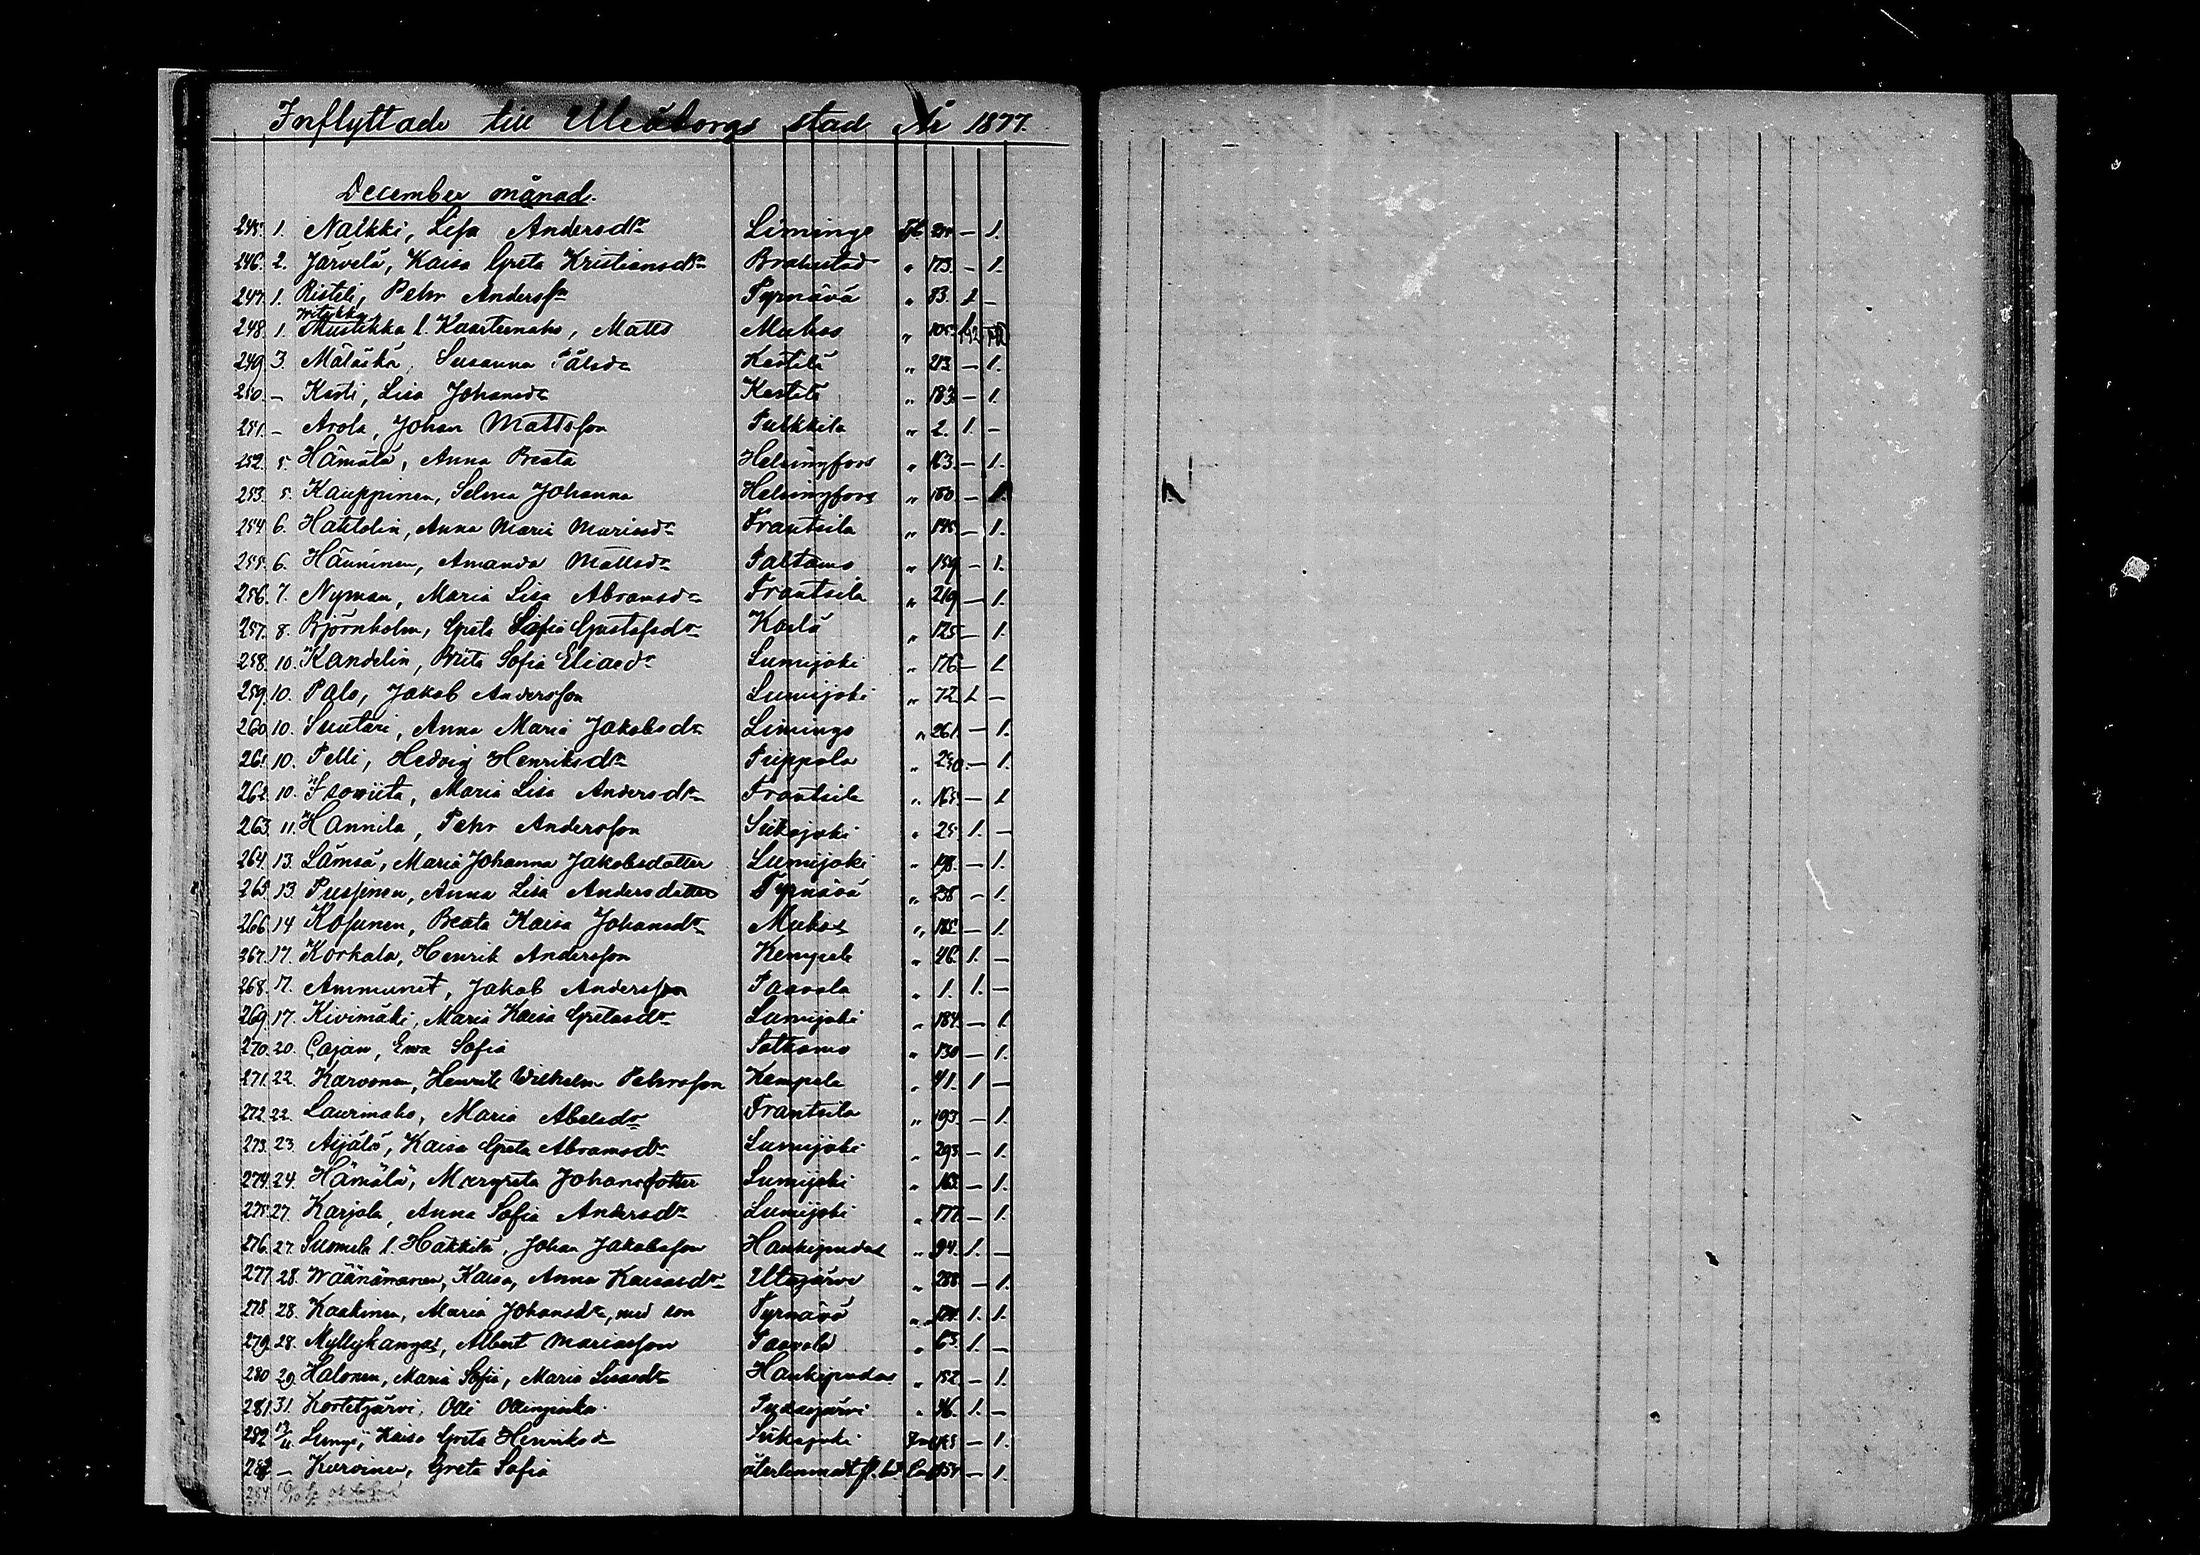 Inflyttade till Uleåborgs stad År 1877.
December månad.
245. 1. Nalkki, Lisa Andersdr Limingo — 1.
246. 2. Järvelä, Kaisa Greta Kristiansdr Brahestad " 173. — 1.
247. 1. Risteli, Pehr Andersson Tyrnävä " 83. 1 —
248. 1. Mustikka l. Kaarteenaho, Matts Muhos " 105
249. 3. Mäläskä, Susanna Pålsdr Kestilä " 213. — 1.
250. — Kesti, Lisa Johansdr Kestilä " 183 — 1.
251. — Arola, Johan Mattsson Pulkkila " 2. 1. —
252. 5. Hämälä, Anna Beata Helsingfors " 163. — 1.
253. 5. Kauppinen, Selma Johanna Helsingfors " 180. — 1
254. 6. Anna Maria Mariasdr Frantsila " — 1.
255. 6. Hänninen, Amanda Mattsdr Paltamo " 159 — 1.
256. 7. Nyman, Maria Lisa Abramsdr Frantsila " 219 — 1.
257. 8. Björnholm, Greta Sofia Gustafsdr Karlö " 125 — 1.
258. 10. Kandelin, Brita Sofia Eliasdr Lumijoki " 176 — 1
259. 10. Palo, Jakob Andersson Lumijoki " 72 1 —
260. 10. Suutari, Anna Maria Jakobsdr Limingo " 261. — 1.
261. 10. Pelli, Hedvig Henriksdr Piippola " 240. — 1.
262. 10. Isowiita, Maria Lisa Andersdr Frantsila " 165. — 1
263. 11. Hannila, Pehr Andersson Siikajoki " 25. 1. —
264. 13. Lämsä, Maria Johanna Jakobsdotter Lumijoki " 198. — 1.
265. 13. Anna Lisa Andersdotter Tyrnävä " 238 — 1.
266. 14 Kosunen, Beata Kaisa Johansdr Muhos " 185. — 1.
267. 17. Korkala, Henrik Andersson Kempele " 46. 1. —
268. 17. Ammunet, Jakob Andersson Paavola " 1. 1. —
269. 17. Kivimäki, Maria Kaisa Gretasdr Lumijoki " 184. — 1
270. 20. Cajan, Ewa Sofia " 130 — 1.
271. 22. Karvonen, Henrik Wilhelm Pehrsson Kempele " 41. 1 —
272. 22. Laurinaho, Maria Abelsdr Frantsila " 193. — 1.
273. 23. Äijälä, Kaisa Greta Abramsdr Lumijoki " 293 — 1.
274. 24. Hämälä, Margreta Johansdotter Lumijoki " 163. — 1.
275. 27. Karjola, Anna Sofia Andersdr Lumijoki " 177. — 1.
276. 27. Suomela l. Häkkilä, Johan Jakobsson Haukipudas " 94. 1. —
277. 28. Wäänänen, Kaisa, Anna Kaisasdr Utajärvi " 288. — 1.
278. 28. Kaakinen, Maria Johansdr, med son Tyrnävä " 1. 1.
279. 28. Myllykangas, Albert Mariasson Paavola " 63. 1. —
280 29. Halonen, Maria Sofia, Maria Lisasdr Haukipudas " 152 — 1.
281. 31. Kortetjärvi, Olli Ollinpoika. Pudasjärvi " 46. 1. —
282. Kaisa Greta Henriksdr Siikajoki — 1.
— Kurvinen, Greta Sofia återlemnadt — 1.
284